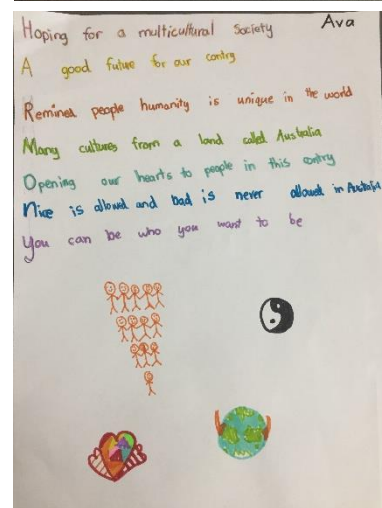 Hoping for a multicultural Society Ava
A good future for our contry
Remined people humanity is unique in the world
Many cultures from a land called Australia
Opening our hearts to people in this contry
Nice is allowed and bad is never allowed in Australia
You can be who you want to be